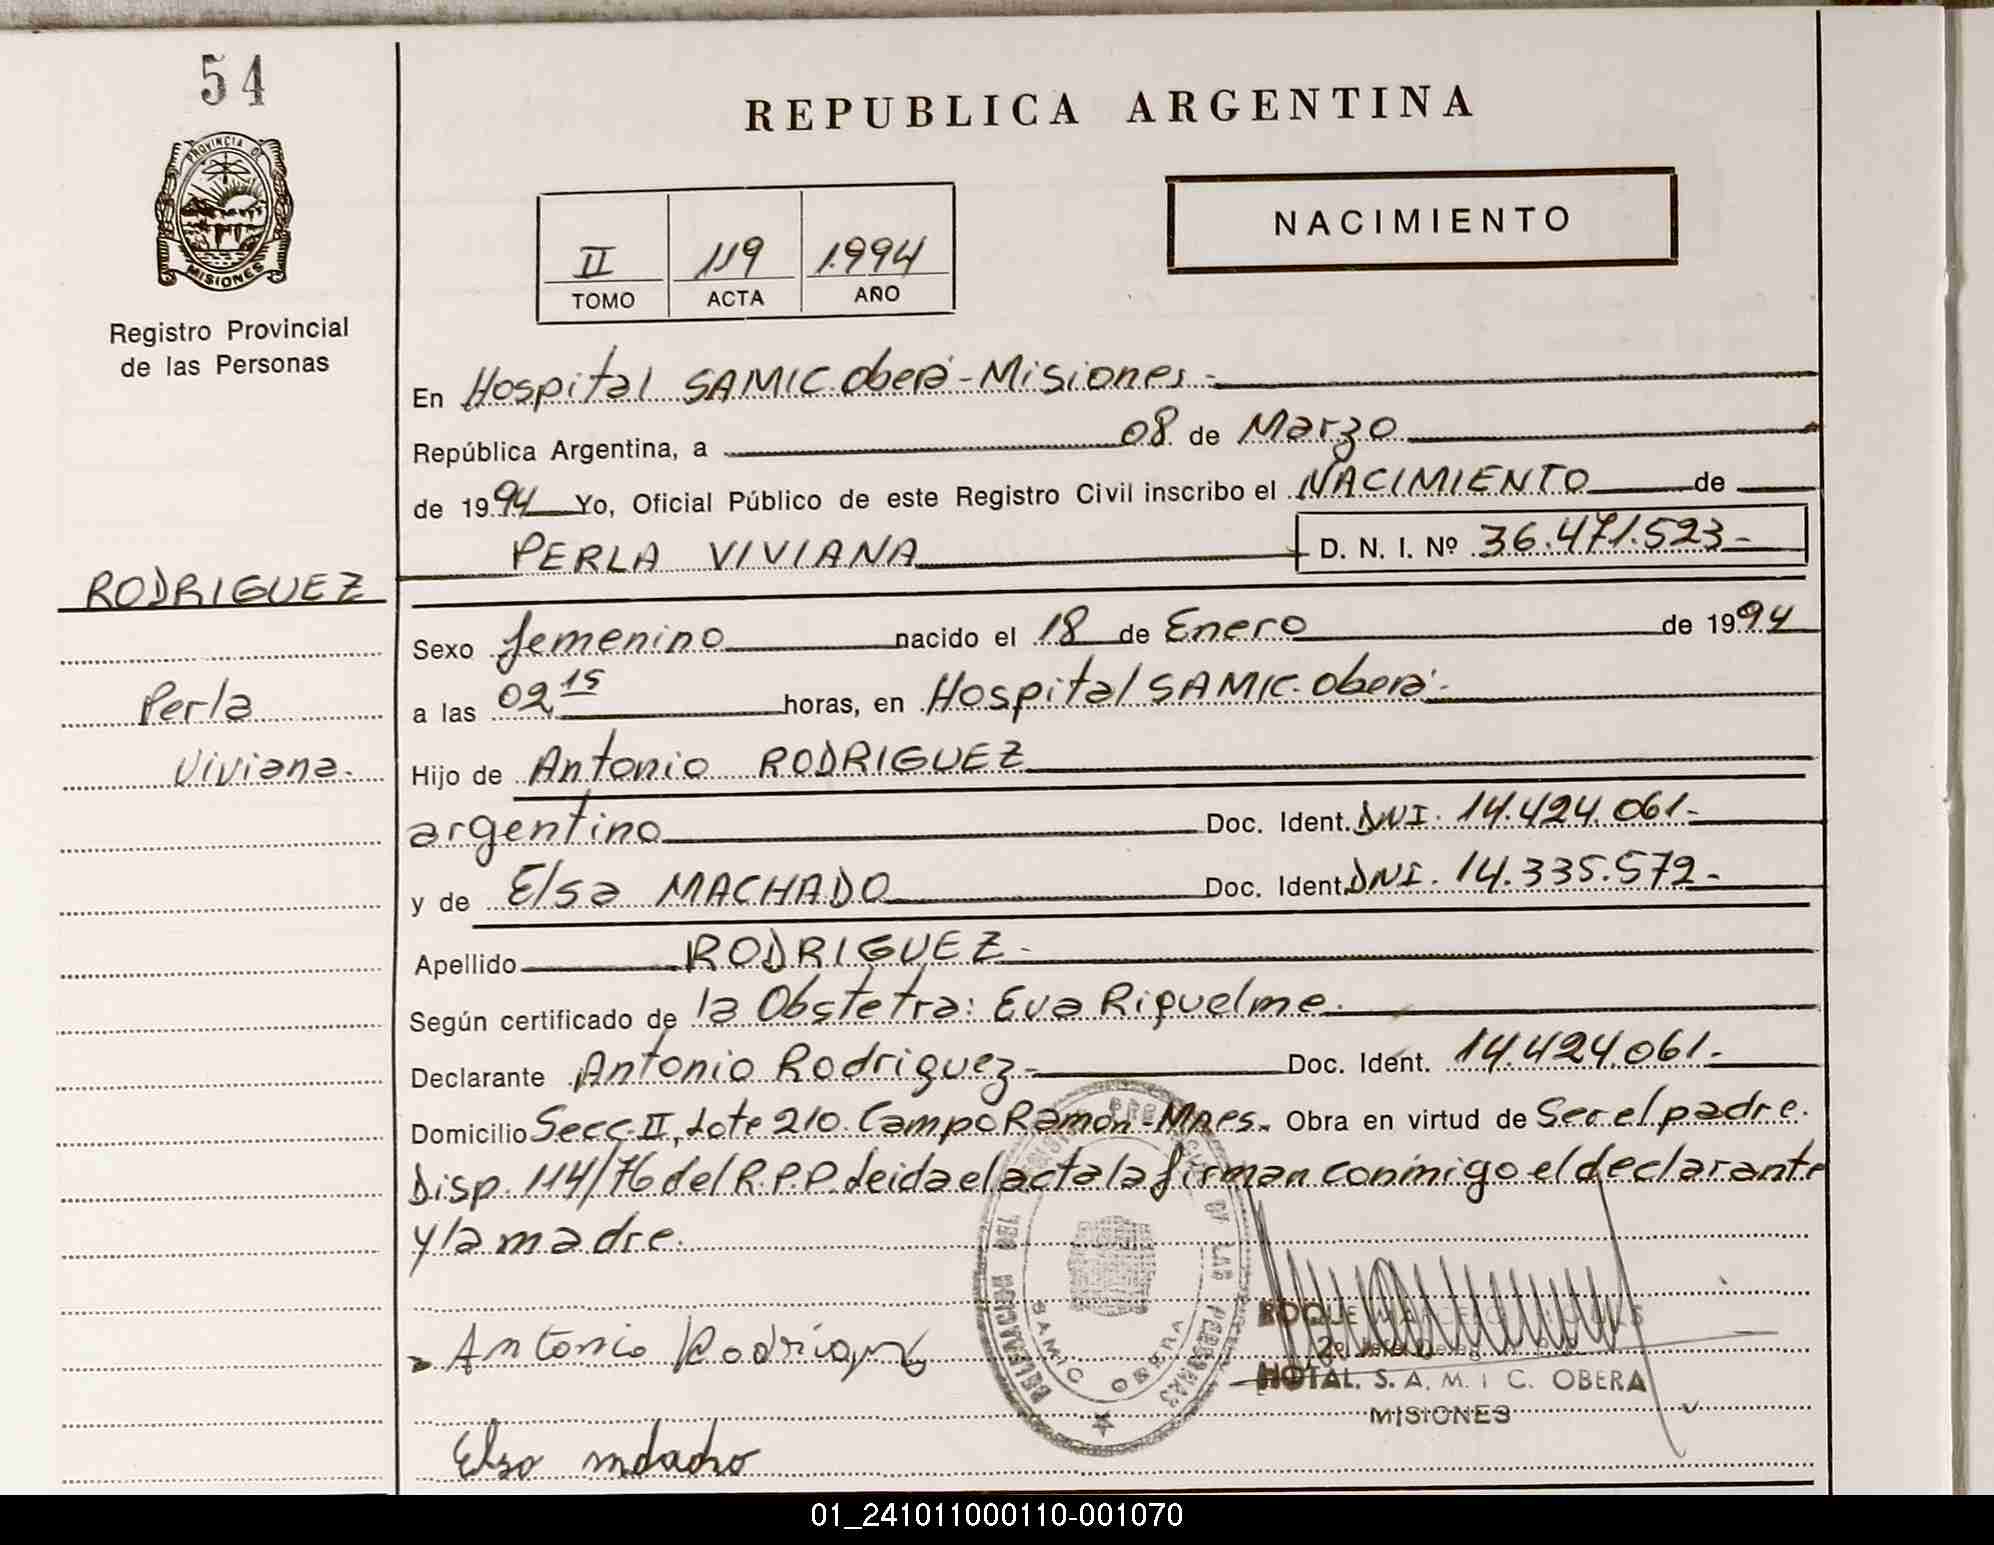 54
REPUBLICA ARGENTINA
PROVINCIA DE
MISIONES
Registro Provincial
de las Personas
NACIMIENTO
II 119 1.994
TOMO ACTA AÑO
En Hospital SAMIC Oberá - Misiones -
República Argentina, a 08 de Marzo
de 1994 Yo, Oficial Público de este Registro Civil inscribo el NACIMIENTO de
PERLA VIVIANA D. N. I. Nº 36.471.523-
RODRIGUEZ
Perla
Viviana.-
Sexo femenino nacido el 18 de Enero de 1994
a las 02,15 horas, en Hospital SAMIC. Oberá.-
Hijo de Antonio RODRIGUEZ
argentino Doc. Ident. DNI. 14.424.061-
y de Elsa MACHADO Doc. Ident. DNI. 14.335.572-
Apellido RODRIGUEZ -
Según certificado de la Obstetra: Eva Riquelme.
Declarante Antonio Rodriguez - Doc. Ident. 14.424.061-
Domicilio Secc. II, Lote 210. Campo Ramón - Mnes. Obra en virtud de Ser el padre.
Disp. 114/76 del R.P.P. Leida el acta la firman conmigo el declarante
y la madre.
Antonio Rodriguez
DELEGACION
DE LAS PERSONAS
SAMIC OBERA
ROQUE
HOTAL. S. A. M. I C. OBERA
MISIONES
Elsa
01_241011000110-001070